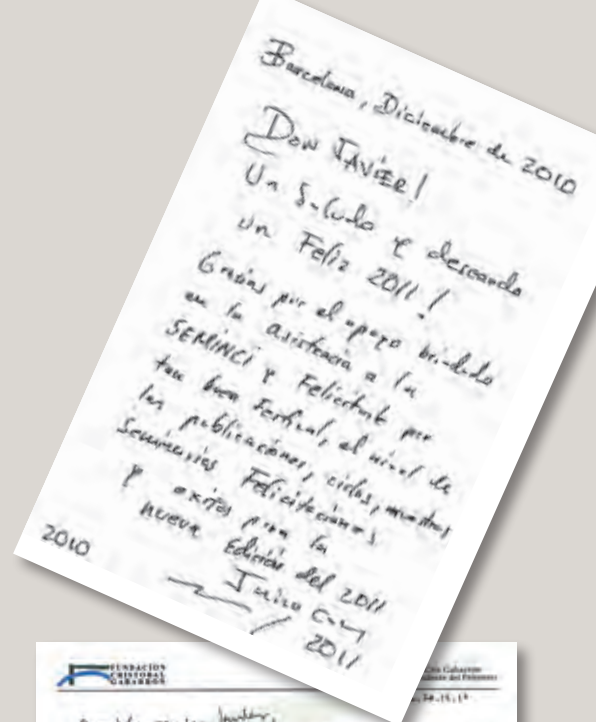 Barcelona, Diciembre de 2010
Don JAVIER!
Un Saludo y deseando
un Feliz 2011!
Gracias por el apoyo brindado
en la asistencia a la
SEMINCI y Felicitarte por
tan buen Festival, el nivel de
las publicaciones, ciclos, muestras
Seminarios Felicitaciones
y exitos para la
nueva Edición del 2011
2010
2011
FUNDACIÓN
CRISTÓBAL
GABARRÓN
Gabarrón
del Patronato